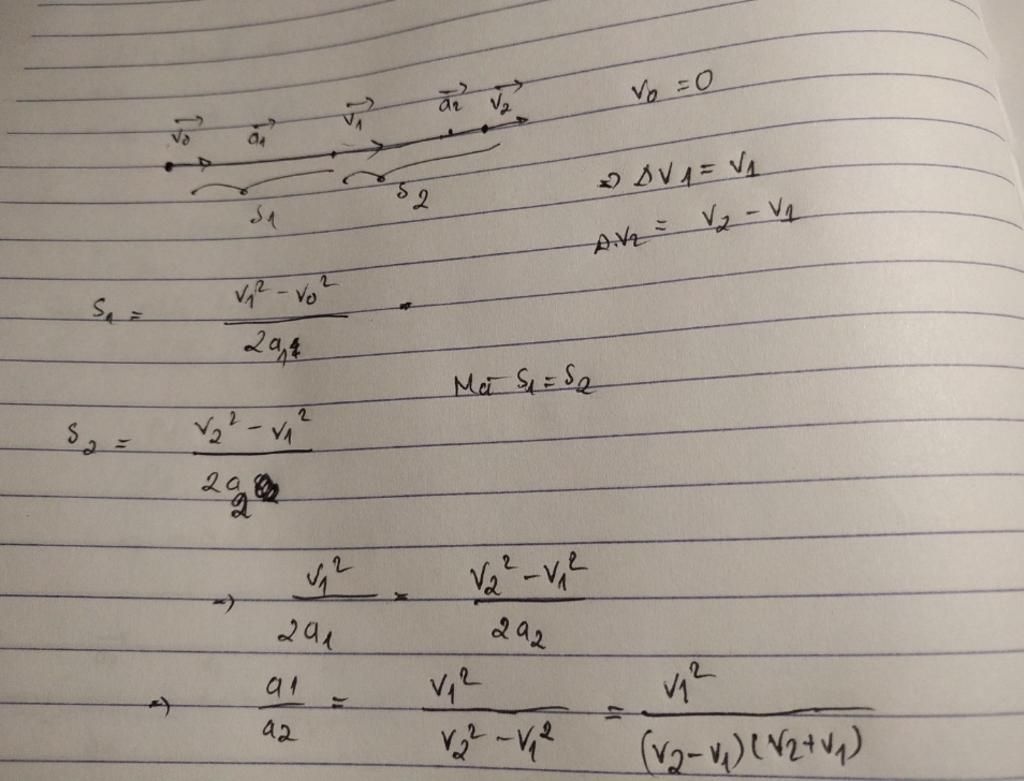 v₀⃗ a₁⃗ v₁⃗ a₂⃗ v₂⃗ v₀ = 0
S₁ S₂ => ΔV₁ = V₁
Δ.V₂ = V₂ - V₁
S₁ = (V₁² - V₀²) / 2a₁
Mà S₁ = S₂
S₂ = (V₂² - V₁²) / 2a₂
=> V₁² / 2a₁ = (V₂² - V₁²) / 2a₂
=> a1 / a2 = V₁² / (V₂² - V₁²) = V₁² / (V₂ - V₁)(V₂ + V₁)